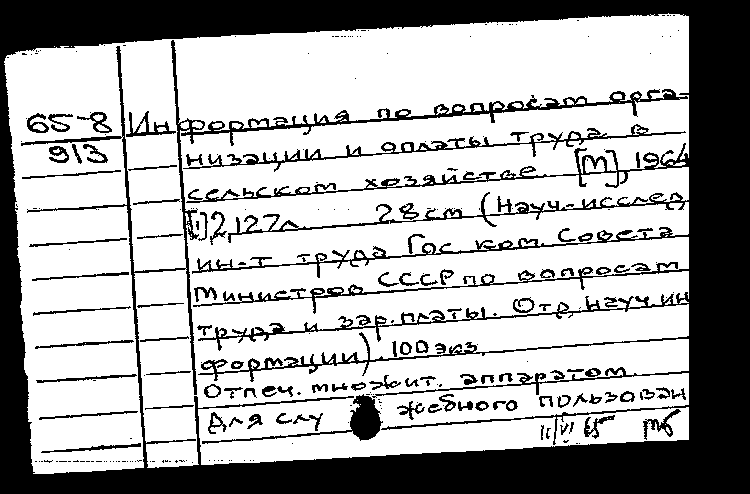 65-8 Информация по вопросам орга-
913 низации и оплаты труда в
сельском хозяйстве. [М], 1964
[1] 2, 127 л. 28 см (Науч.-исслед.
ин-т труда Гос ком. Совета
Министров СССР по вопросам
труда и зар. платы. Отд. науч. ин
формации). 100 экз.
Отпеч. множит. аппаратом.
Для служебного пользован
11/VI 65